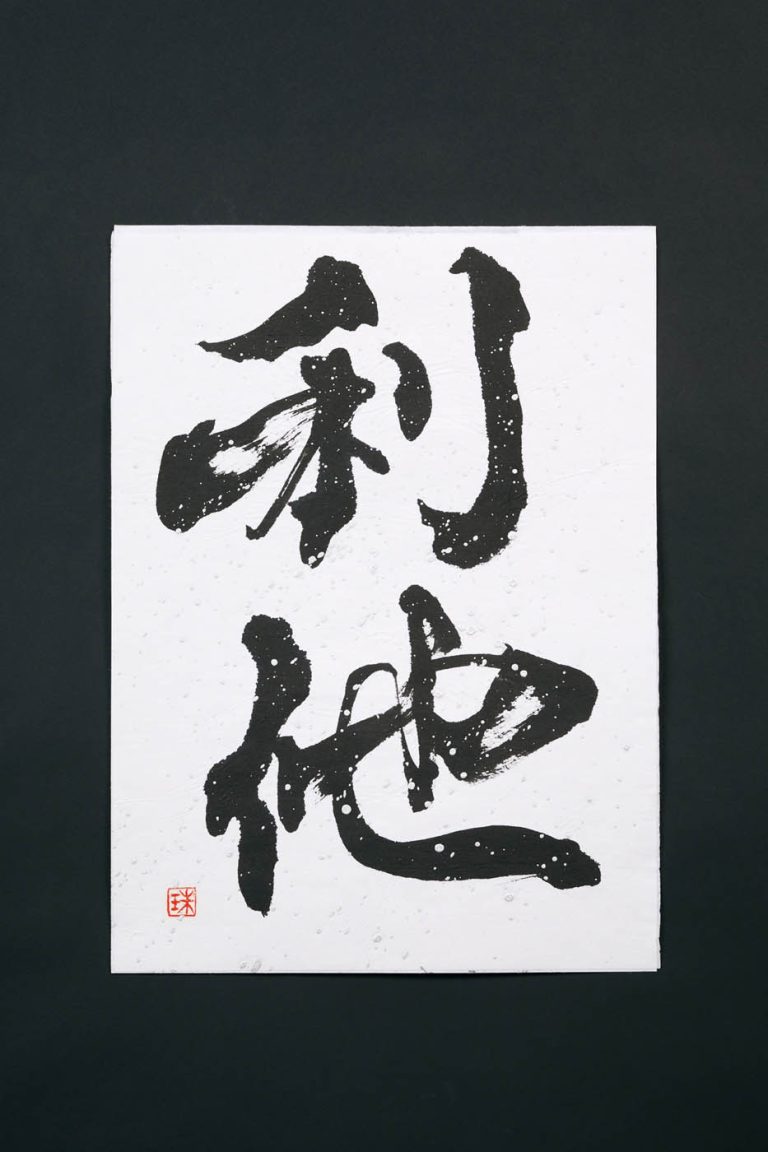 利他
珠